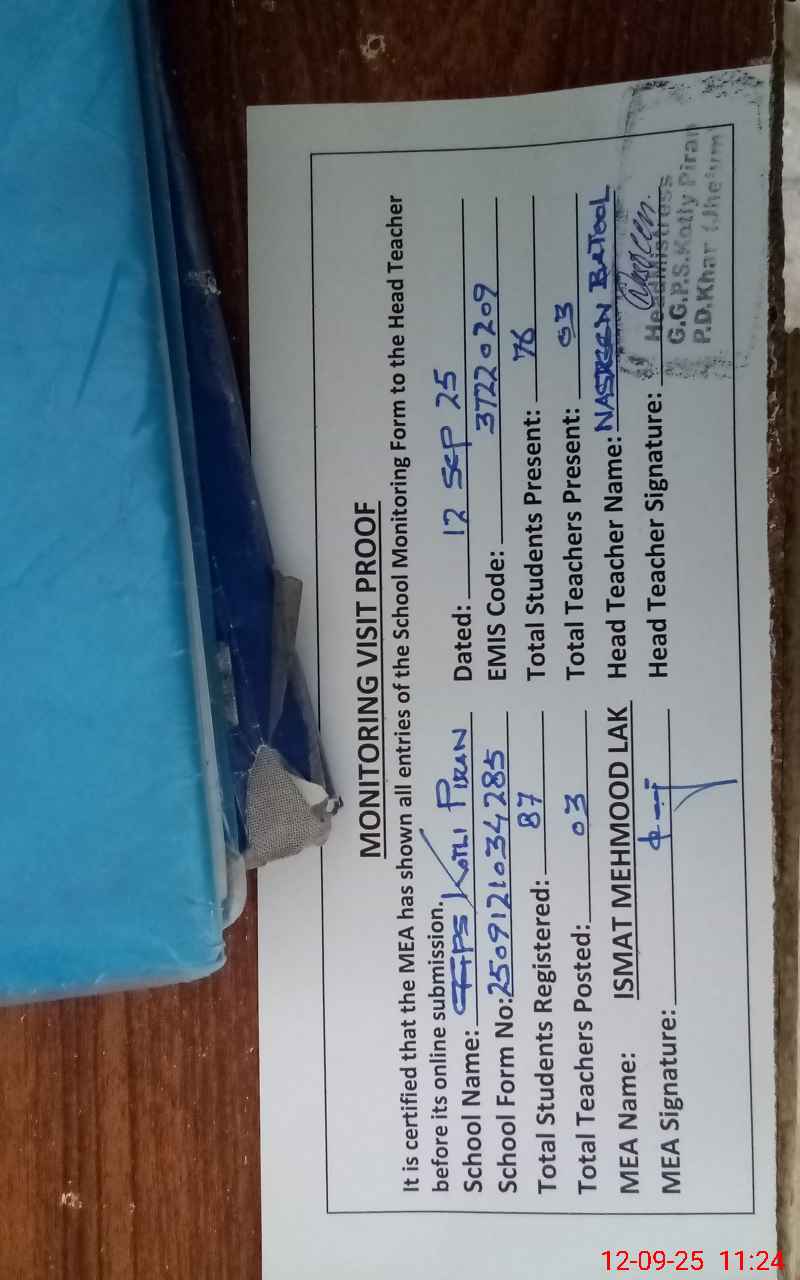 MONITORING VISIT PROOF
It is certified that the MEA has shown all entries of the School Monitoring Form to the Head Teacher
before its online submission.
School Name: GGPS Kotli Piran Dated: 12 Sep 25
School Form No: 2509121034285 EMIS Code: 37220209
Total Students Registered: 87 Total Students Present: 76
Total Teachers Posted: 03 Total Teachers Present: 03
MEA Name: ISMAT MEHMOOD LAK Head Teacher Name: NASREEN BATOOL
MEA Signature: Head Teacher Signature:
Headmistress
G.G.P.S.Kotly Piran
P.D.Khan (Jhelum)
12-09-25 11:24